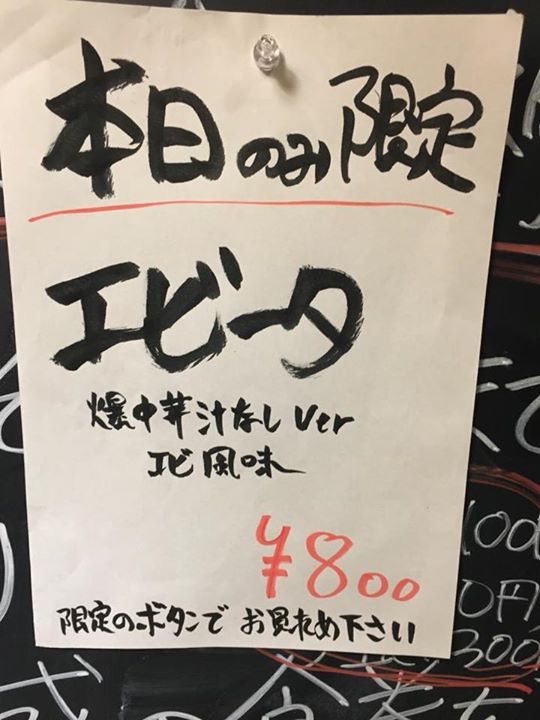 本日のみ限定
エビータ
爆中芽汁なし Ver
エビ風味
¥800
限定のボタンで お買求め下さい
000
0円
300